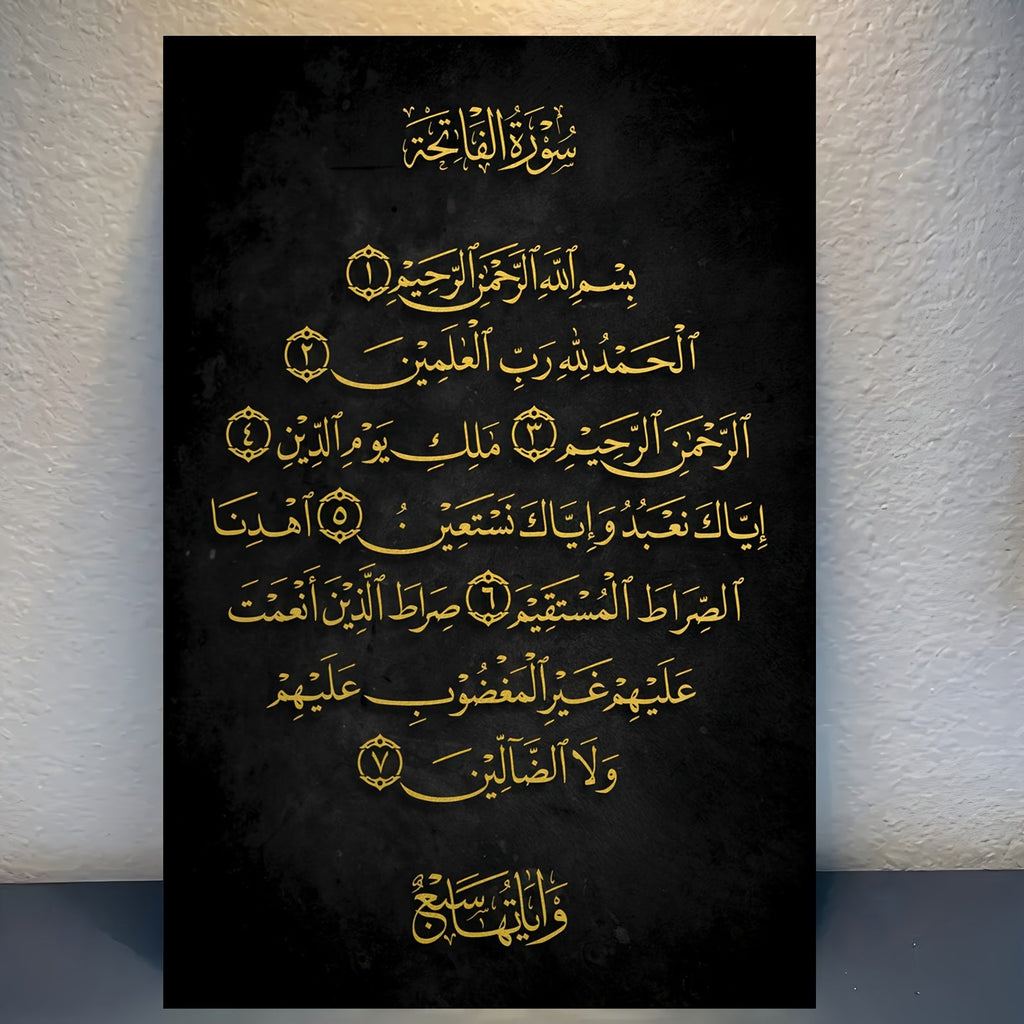 سُوْرَةُ الْفَاتِحَةِ
بِسْمِ ٱللَّهِ ٱلرَّحْمَٰنِ ٱلرَّحِيْمِ ١
ٱلْحَمْدُ لِلَّهِ رَبِّ ٱلْعَٰلَمِيْنَ ٢
ٱلرَّحْمَٰنِ ٱلرَّحِيْمِ ٣ مَٰلِكِ يَوْمِ ٱلدِّيْنِ ٤
إِيَّاكَ نَعْبُدُ وَإِيَّاكَ نَسْتَعِيْنُ ٥ ٱهْدِنَا
ٱلصِّرَاطَ ٱلْمُسْتَقِيْمَ ٦ صِرَاطَ ٱلَّذِيْنَ أَنْعَمْتَ
عَلَيْهِمْ غَيْرِ ٱلْمَغْضُوْبِ عَلَيْهِمْ
وَلَا ٱلضَّآلِّيْنَ ٧
وَاٰيَاتُهَا سَبْعٌ